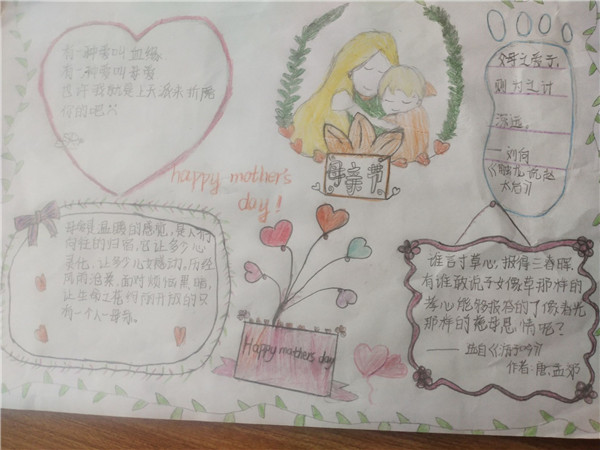 有一种爱叫血缘
有一种爱叫母爱
也许我就是上天派来折腾
你的吧六
happy mother's
day!
母亲节
父母之爱子，
则为之计
深远。
——刘向
《触龙说赵
太后》
母爱是温暖的感觉，是人们
向往的归宿。它让多少心
美化，让多少儿女感动，历经
风雨沧桑，面对烦恼黑暗，
让生命之花灼灼开放的只
有一个人——母亲。
Happy mothers day
谁言寸草心，报得三春晖。
有谁敢说子女像草那样的
孝心能够报答的了像春光
那样的慈母恩情呢？
——出自《游子吟》
作者：唐·孟郊